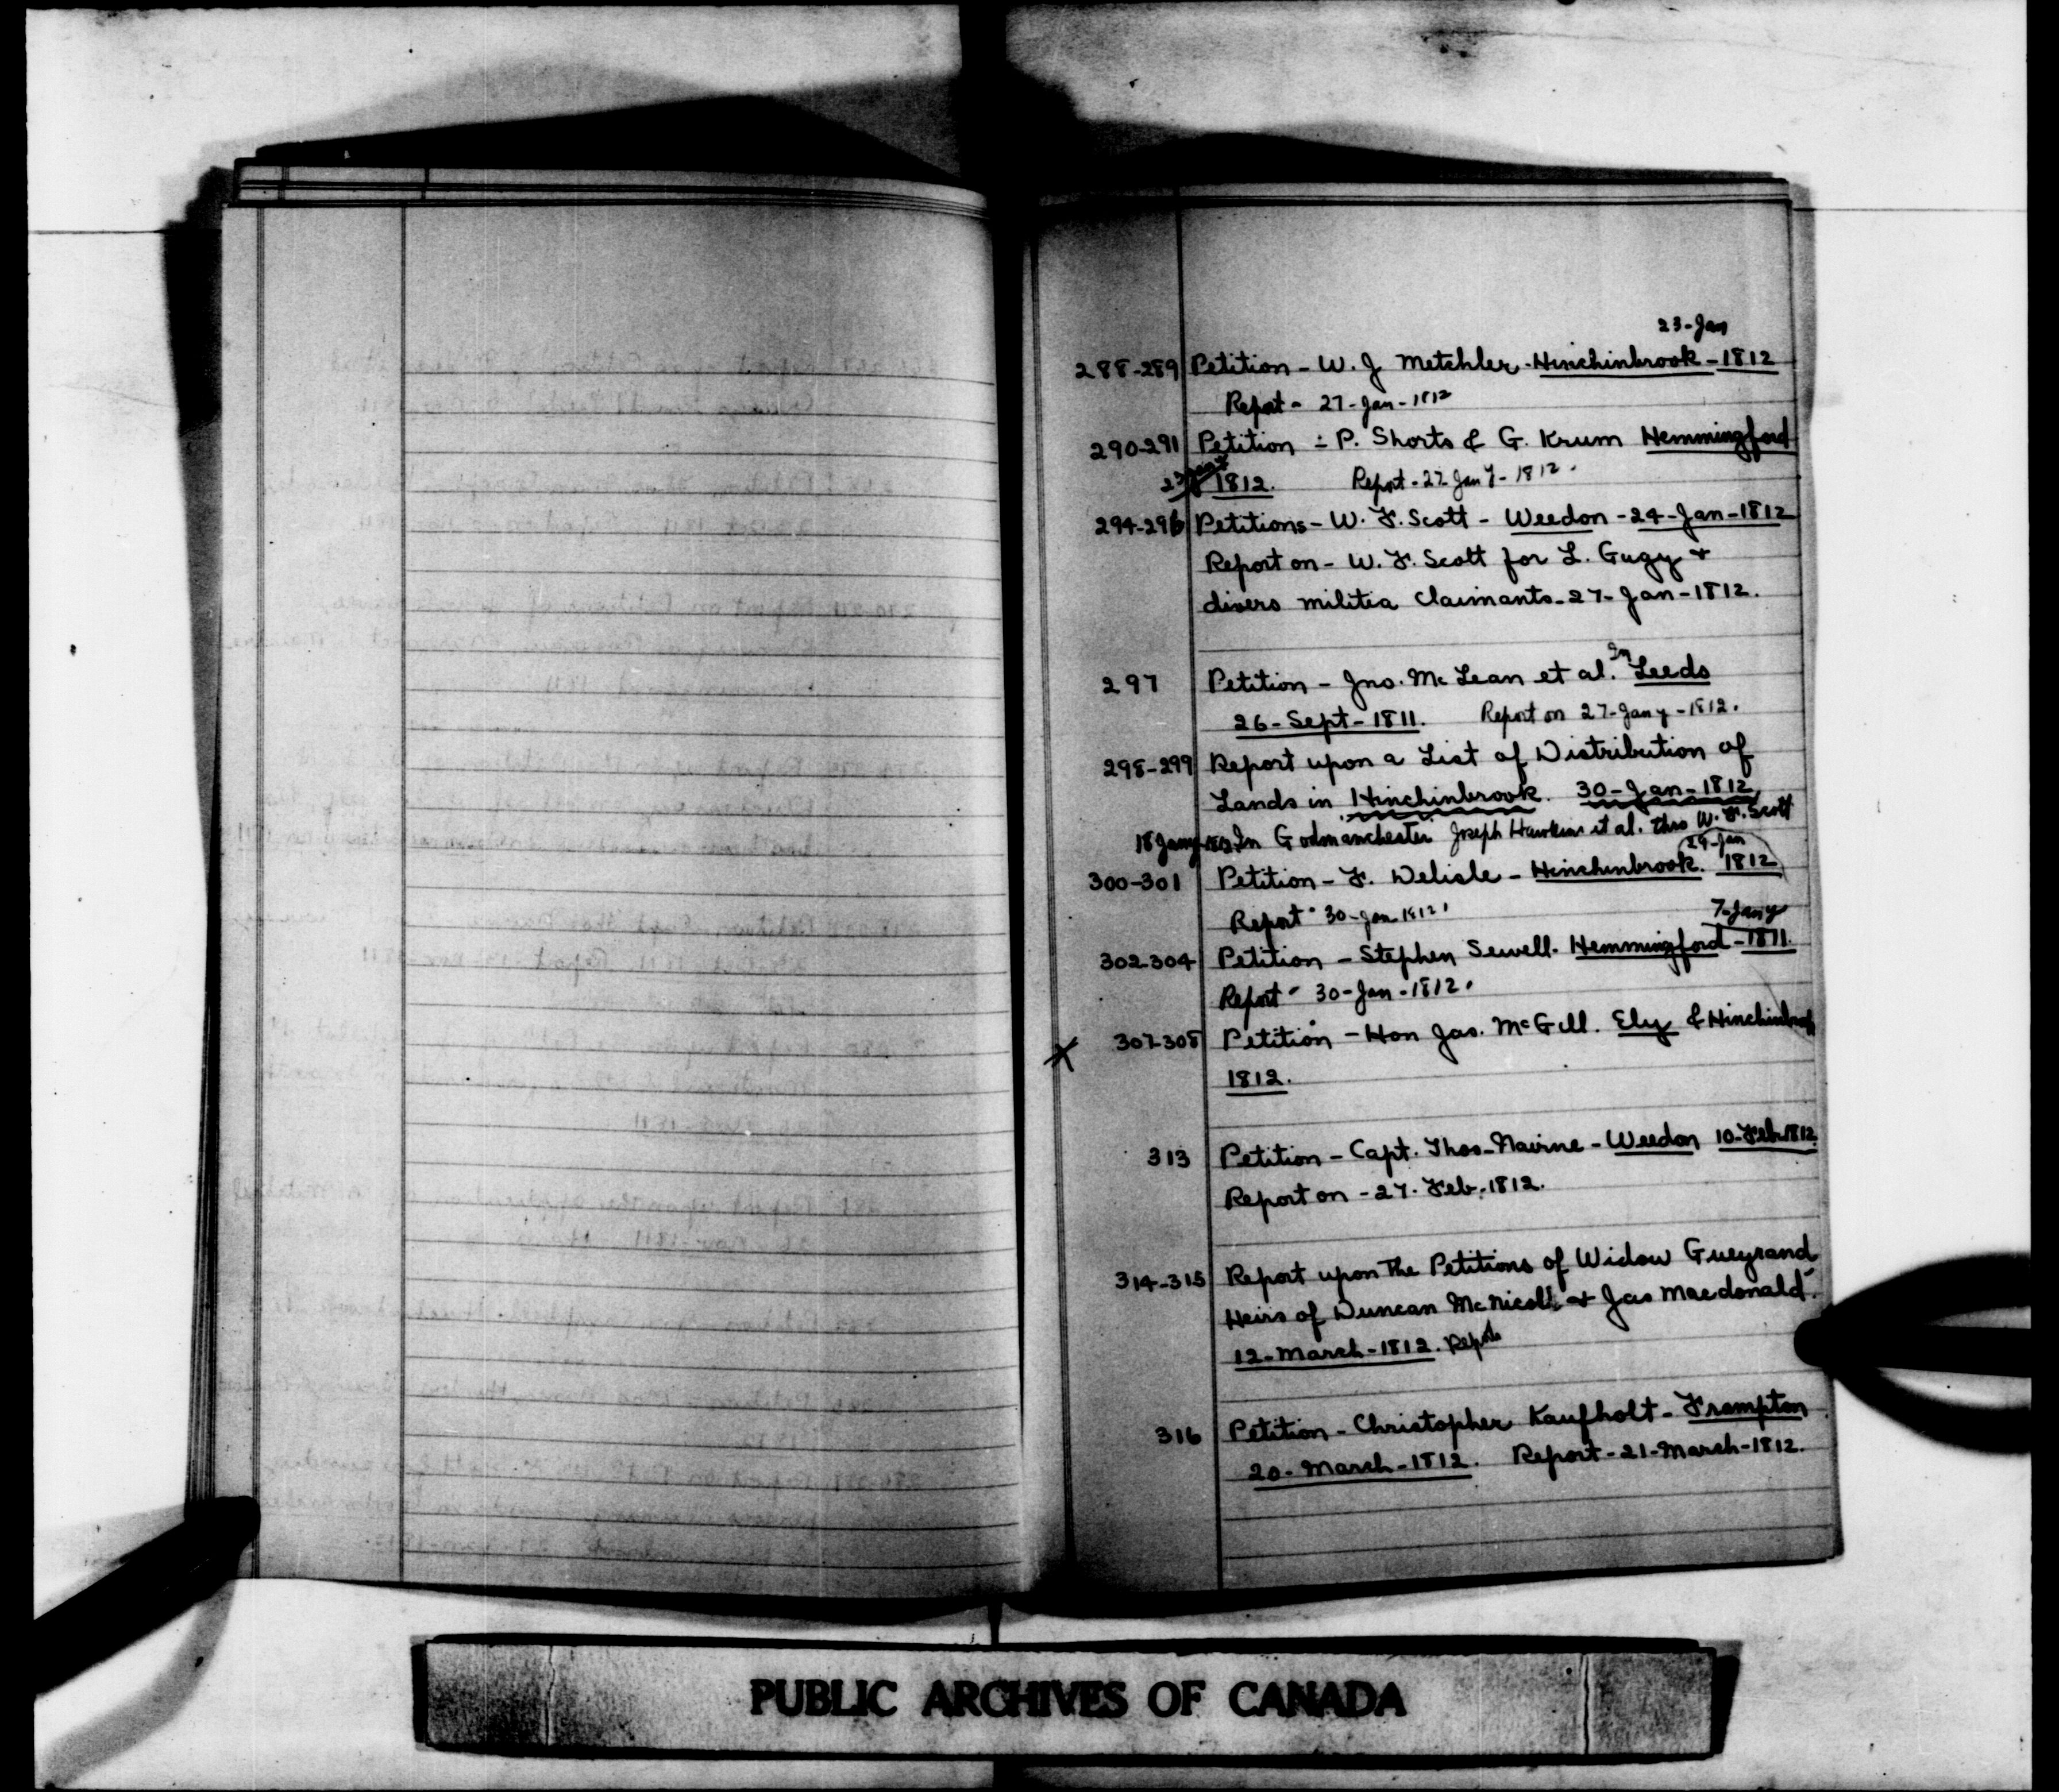 23-Jan
288-289 Petition - W. J. Metchler - Hinchinbrook - 1812
Report - 27-Jan-1812
290-291 Petition - P. Shorts & G. Krum Hemmingford
1812. Report - 27 Jany - 1812.
294-296 Petitions - W. F. Scott - Weedon - 24-Jan-1812
Report on - W. F. Scott for L. Gugy &
divers militia Claimants - 27-Jan-1812.
297 Petition - Jno. McLean et al. In Leeds
26-Sept-1811. Report on 27-Jany-1812.
298-299 Report upon a List of Distribution of
Lands in Hinchinbrook. 30-Jan-1812,
18 Jany 1812 In Godmanchester Joseph Hawkins et al. thro W. F. Scott
29-Jan
300-301 Petition - F. Delisle - Hinchinbrook. 1812
Report - 30-Jan 1812.
7-Jany
302-304 Petition - Stephen Sewell. Hemmingford - 1811.
Report - 30-Jan-1812.
X 307-308 Petition - Hon Jas. McGill. Ely & Hinchinbrook
1812.
313 Petition - Capt. Thos-Nairne - Weedon 10-Feb 1812
Report on - 27. Feb. 1812.
314-315 Report upon The Petitions of Widow Gueyrand
Heirs of Duncan McNicoll & Jas Macdonald.
12-March-1812. Report
316 Petition - Christopher Kaufholt - Frampton
20-March-1812. Report - 21-March-1812.
PUBLIC ARCHIVES OF CANADA